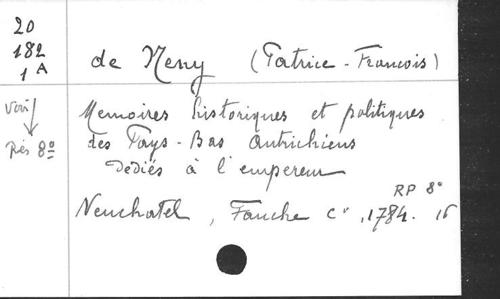 20
182
1 A
de Neny (Patrice-Francois)
Voir
Rés 8º
Memoires historiques et politiques
des Pays-Bas Autrichiens
Dédiés à l'empereur
RP 8º
Neuchatel, Fauche Cº, 1784. 16